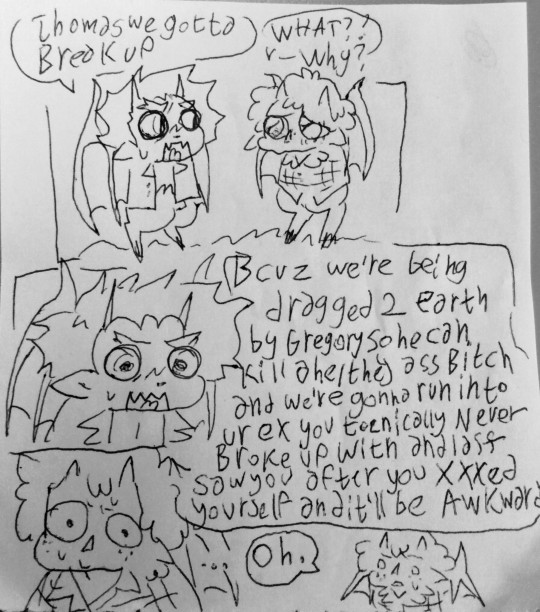 Thomas we gotta
Break up
WHAT?!
r-Why?
Bcuz we're being
dragged 2 Earth
by Gregory so he can
Kill a he(the) ass Bitch
and we're gonna run into
ur ex you tecnically Never
Broke up with and last
saw you after you XXXed
yourself and it'll be Awkward
...
Oh.